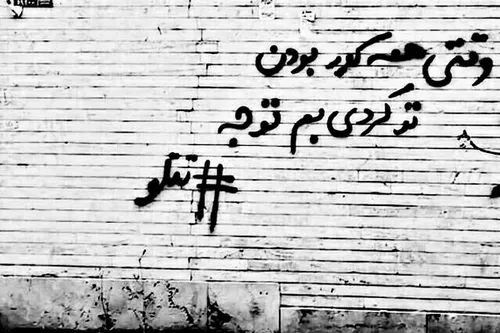 وقتی همه کور بودن
تو کردی بم توجه
#تتلو